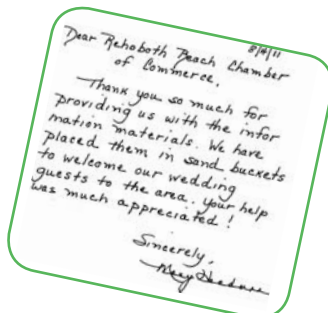 8/4/11
Dear Rehoboth Beach Chamber
of Commerce,
Thank you so much for
providing us with the infor
mation materials. We have
placed them in sand buckets
to welcome our wedding
guests to the area. Your help
was much appreciated!
Sincerely,
Mary